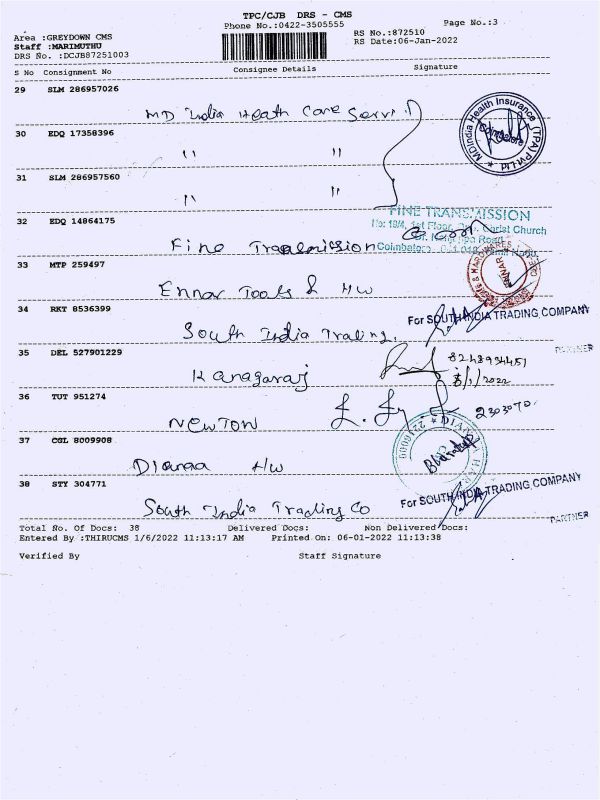 TPC/CJB DRS - CMS
Phone No.:0422-3505555
Page No.:3
Area :GREYDOWN CMS
Staff :MARIMUTHU
DRS No. :DCJB87251003
RS No.:872510
RS Date:06-Jan-2022
S No Consignment No Consignee Details Signature
29 SLM 286957026
MD India Heath Care Servi
MDIndia Health Insurance (TPA) Pvt.Ltd
Coimbatore
30 EDQ 17358396
" "
31 SLM 286957560
" "
FINE TRANSMISSION
32 EDQ 14864175
Fine Transmission
33 MTP 259497
Ennar Tools & H/W
34 RKT 8536399
For SOUTH INDIA TRADING COMPANY
South India Trading.
PARTNER
35 DEL 527901229
Kanagaraj
8248934451
36 TUT 951274
NEWTON
2303070
37 CGL 8009908
Dianaa H/W
38 STY 304771
For SOUTH INDIA TRADING COMPANY
South India Trading Co
PARTNER
Total No. Of Docs: 38 Delivered Docs: Non Delivered Docs:
Entered By :THIRUCMS 1/6/2022 11:13:17 AM Printed On: 06-01-2022 11:13:38
Verified By Staff Signature